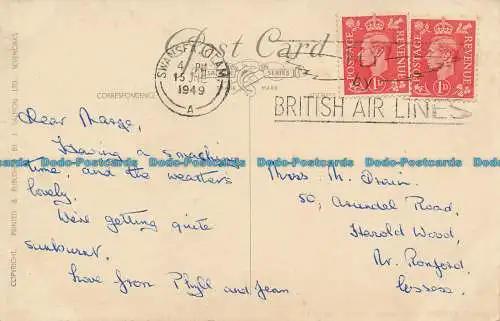 Post Card
SWANSEA
4 PM
15 JLY
1949
A
FLY
BY
BRITISH AIR LINES
POSTAGE REVENUE
1D
POSTAGE REVENUE
1D
SERIES
MARK
CORRESPONDENCE
COPYRIGHT. PRINTED & PUBLISHED BY J. SALMON LTD. SEVENOAKS
Dear Marge,
Having a smashing
time, and the weathers
lovely.
We're getting quite
sunburnt.
Love from Phyll and Jean
Miss M.
50, Arundel Road,
Harold Wood,
Nr. Romford,
Essex.
Dodo-Postcards Dodo-Postcards Dodo-Postcards Dodo-Postcards